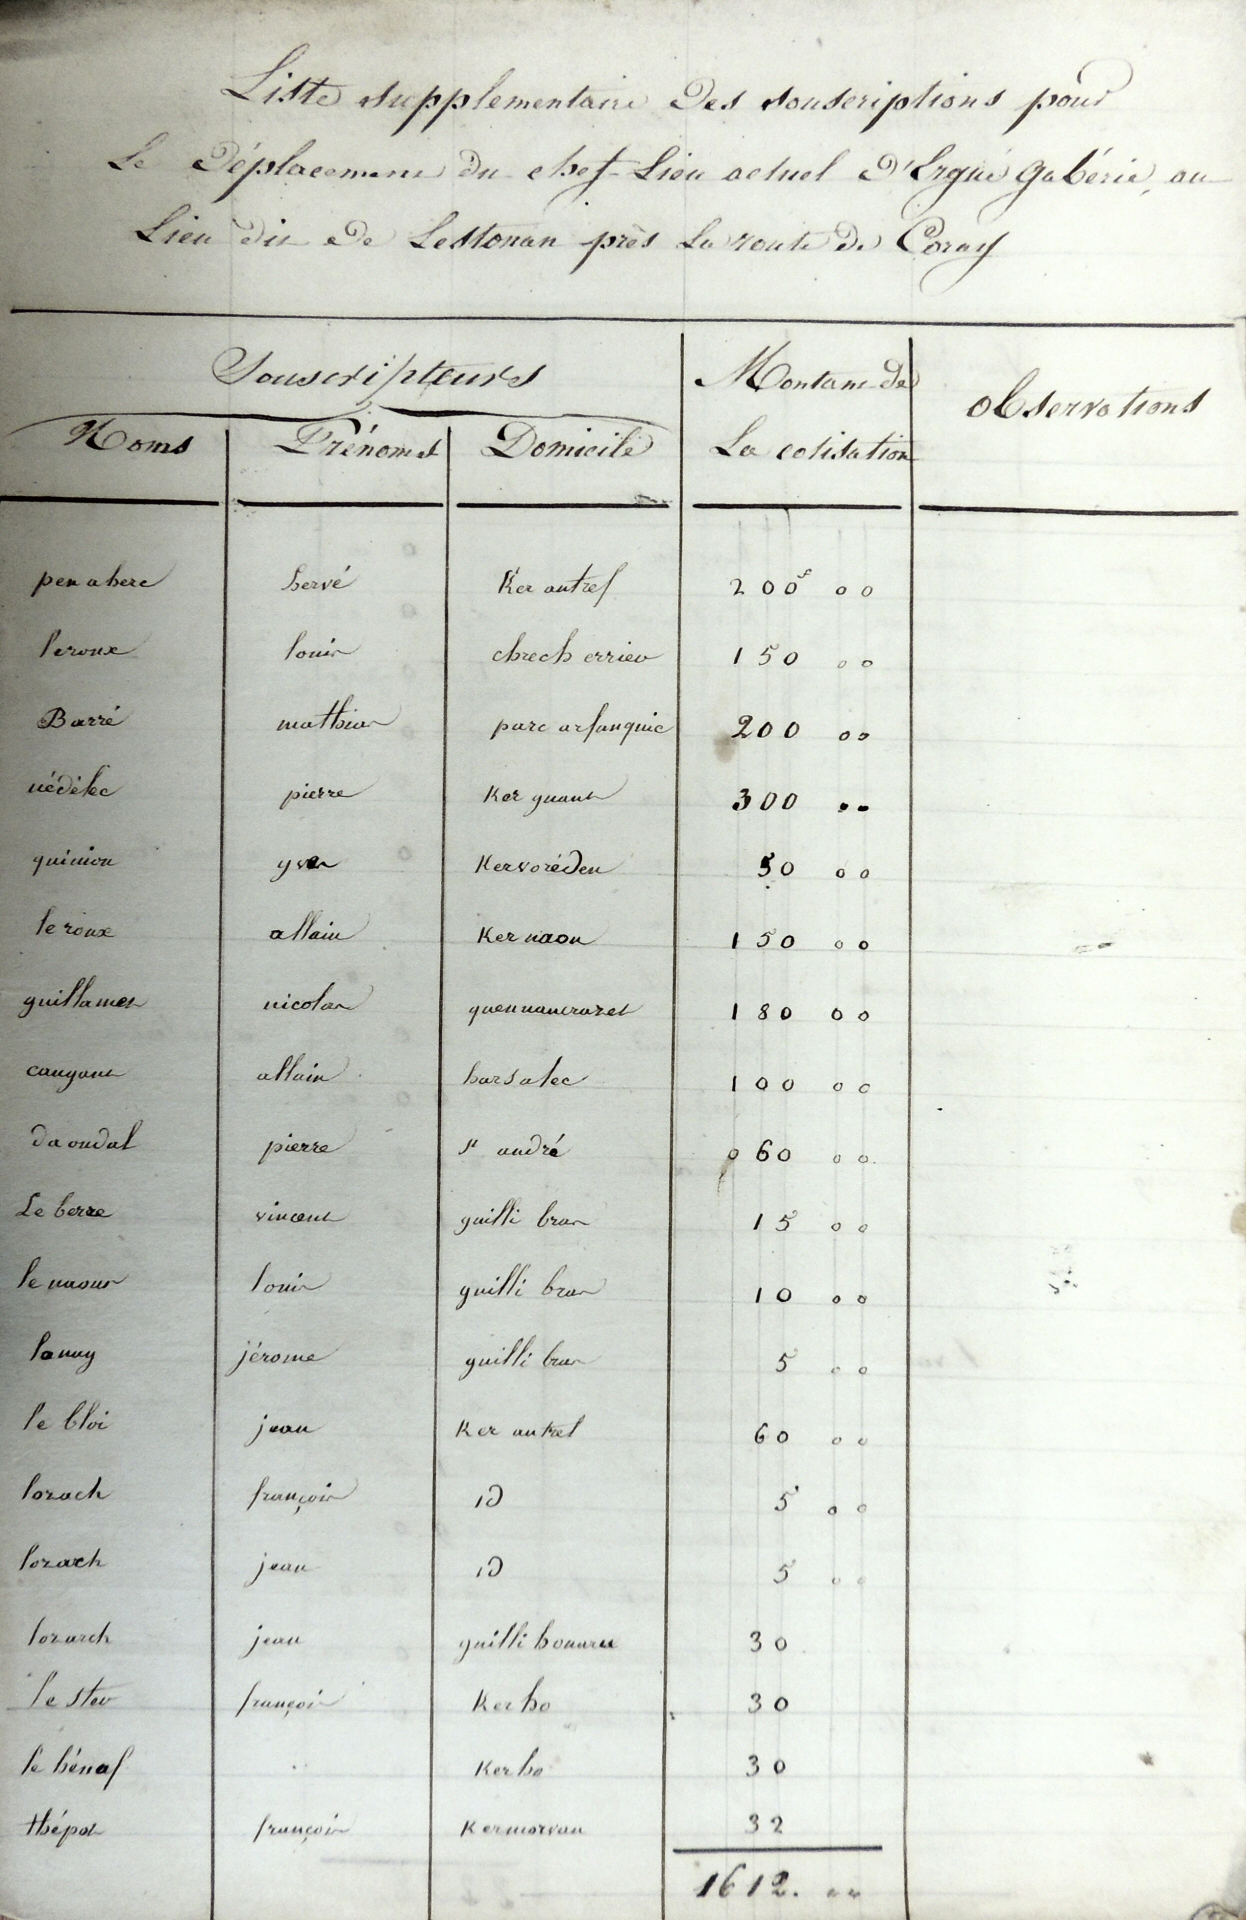 Liste supplementaire des souscriptions pour
Le Déplacement du chef-Lieu actuel d'Ergué gabéric, au
Lieu dit de Lestonan près La route de Coray
Souscripteurs Montant de observations
Noms Prénoms Domicile La cotisation
penaherc hervé Ker autref 200f 00
leroux louis chrech errieu 150 00
Barré mathias parc arfanquic 200 00
nédélec pierre Ker guant 300 00
quiniou yves Kervoréden 50 00
le roux allain Ker naon 150 00
guillamet nicolas quennancrazet 180 00
caugant allain barsalec 100 00
daoudal pierre st andré 060 00
Le berre vincent guilli bras 15 00
le naour louis guilli bras 10 00
lanuy jérome guilli bras 5 00
le bloi jean Ker autret 60 00
lozach françois id 5 00
lozach jean id 5 00
lozarch jean guilli houarn 30
le steo françois Kerho 30
le hénaf Kerho 30
thépot françois Kermorvan 32
1612. 00